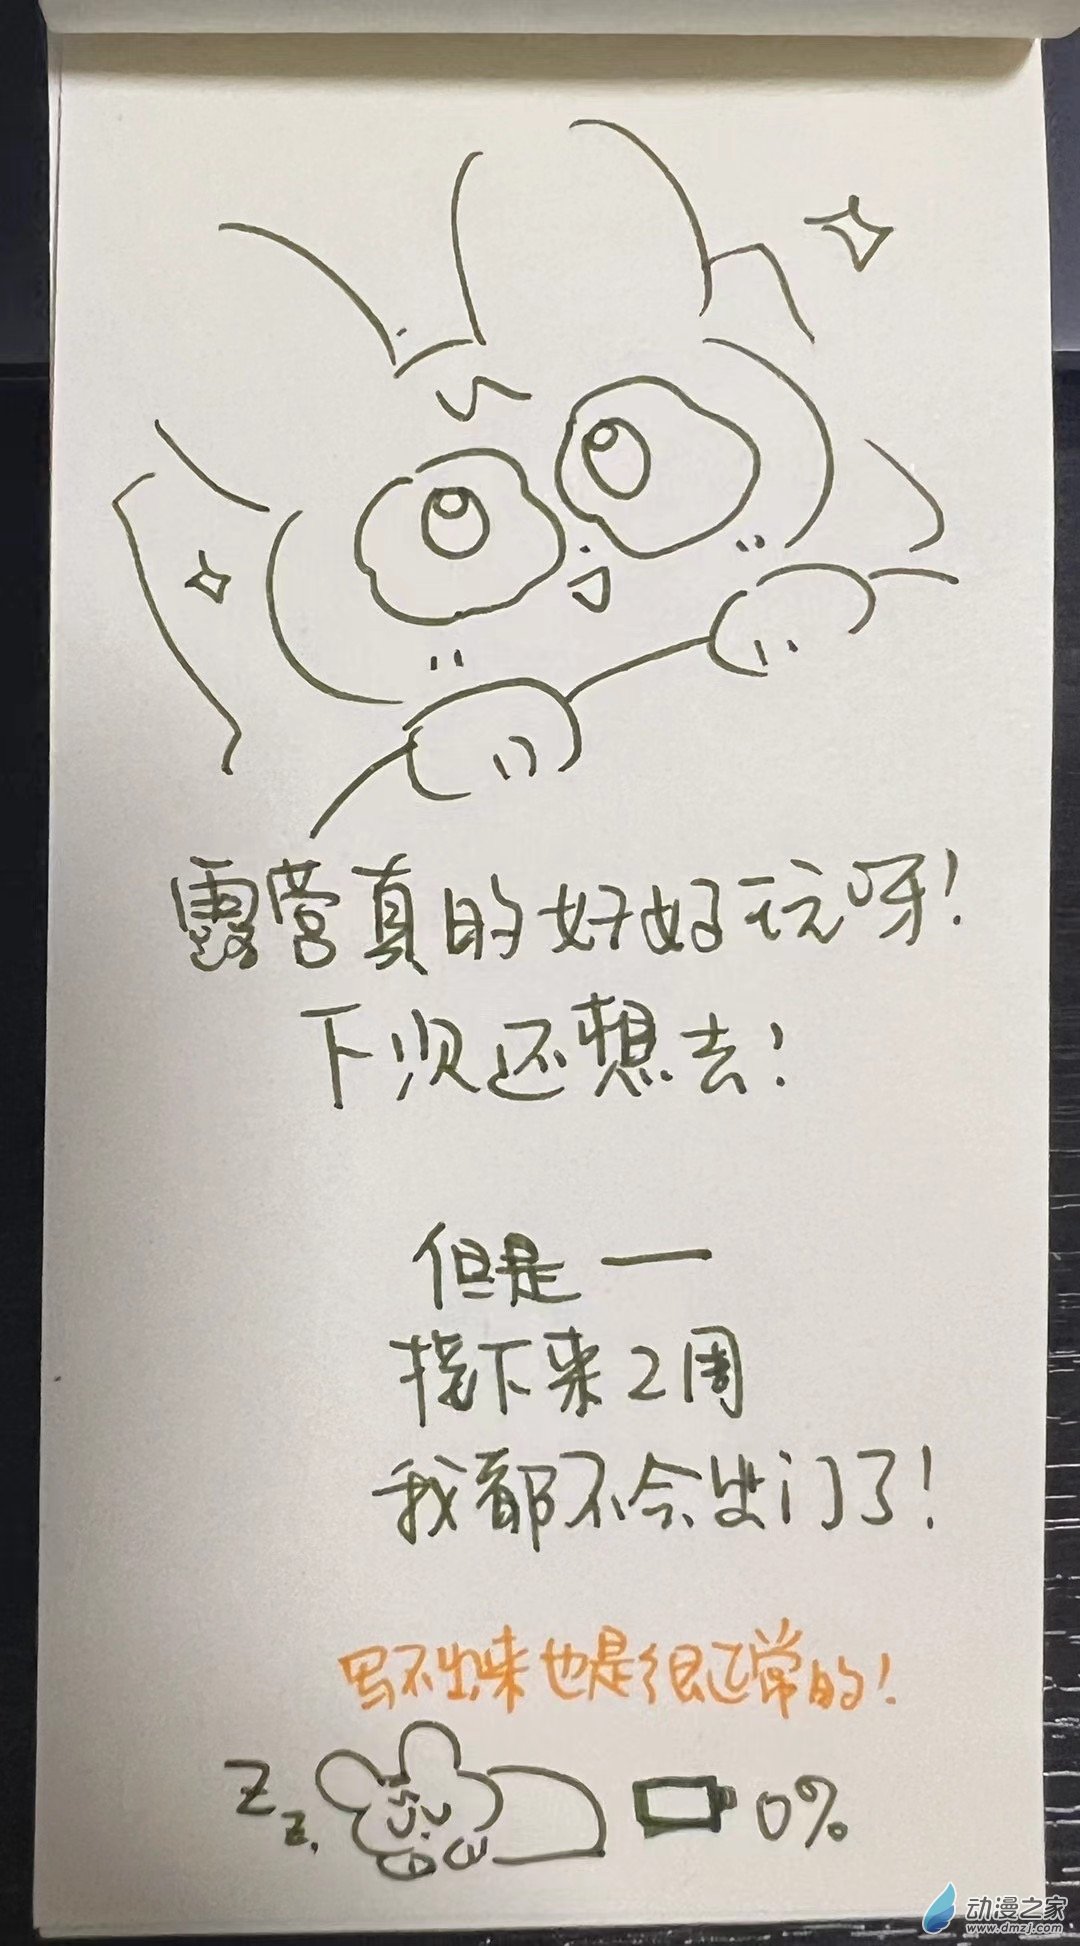 露营真的好好玩呀!
下次还想去!
但是一
接下来2周
我都不会出门了!
写不出来也是很正常的!
Zz.
0%
动漫之家
www.dmzj.com